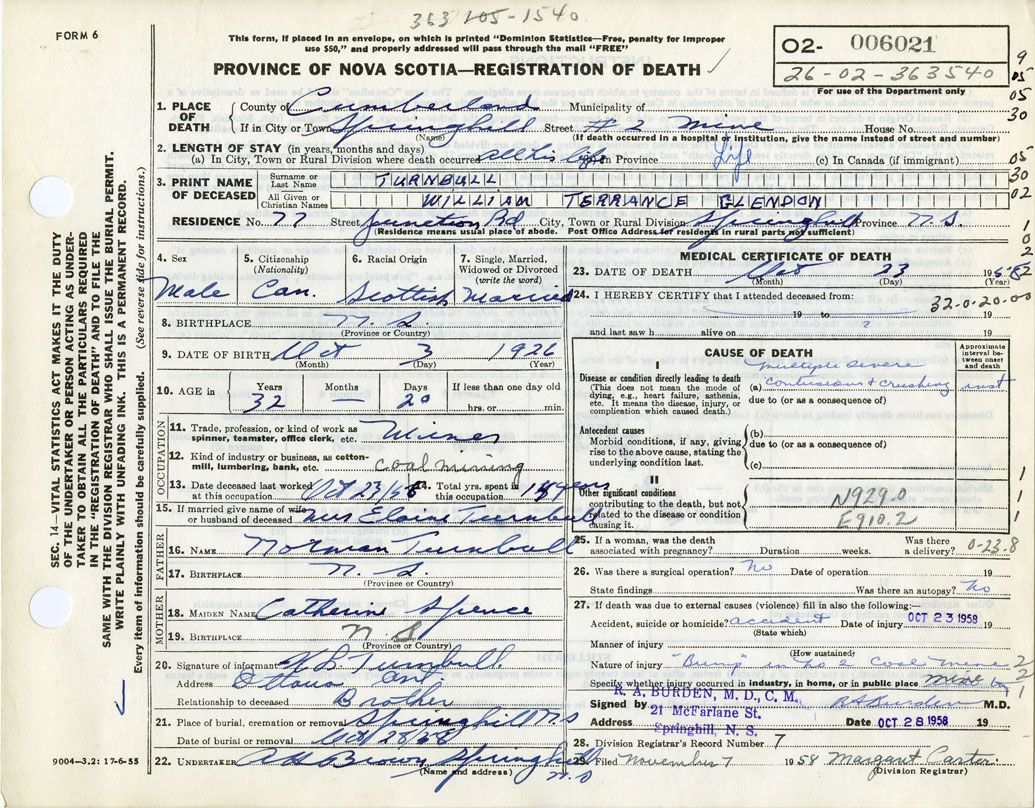 363 105-1540.
FORM 6
This form, if placed in an envelope, on which is printed "Dominion Statistics—Free, penalty for improper
use $50," and properly addressed will pass through the mail "FREE"
PROVINCE OF NOVA SCOTIA—REGISTRATION OF DEATH
O2- 006021
26-02-363540
For use of the Department only
9
05
05
30
05
30
02
1
9
2
2
SEC. 14—VITAL STATISTICS ACT MAKES IT THE DUTY
OF THE UNDERTAKER OR PERSON ACTING AS UNDER-
TAKER TO OBTAIN ALL THE PARTICULARS REQUIRED
IN THE "REGISTRATION OF DEATH" AND TO FILE THE
SAME WITH THE DIVISION REGISTRAR WHO SHALL ISSUE THE BURIAL PERMIT.
WRITE PLAINLY WITH UNFADING INK. THIS IS A PERMANENT RECORD.
Every item of information should be carefully supplied. (See reverse side for instructions.)
1. PLACE OF DEATH
County of Cumberland Municipality of
If in City or Town Springhill Street #2 Mine House No.
(Name) (If death occurred in a hospital or institution, give the name instead of street and number)
2. LENGTH OF STAY (in years, months and days)
(a) In City, Town or Rural Division where death occurred all his life in Province Life (c) In Canada (if immigrant)
3. PRINT NAME OF DECEASED
Surname or Last Name TURNBULL
All Given or Christian Names WILLIAM TERRANCE GLENDON
RESIDENCE No. 77 Street Junction Rd City, Town or Rural Division Springhill Province N.S.
(Residence means usual place of abode. Post Office Address for residents in rural parts not sufficient)
4. Sex
Male
5. Citizenship (Nationality)
Can.
6. Racial Origin
Scottish
7. Single, Married, Widowed or Divorced (write the word)
Married
8. BIRTHPLACE N.S.
(Province or Country)
9. DATE OF BIRTH Oct 3 1926
(Month) (Day) (Year)
10. AGE in Years 32 Months — Days 20 If less than one day old
hrs. or min.
OCCUPATION
11. Trade, profession, or kind of work as
spinner, teamster, office clerk, etc. Miner
12. Kind of industry or business, as cotton-
mill, lumbering, bank, etc. coal mining
13. Date deceased last worked
at this occupation Oct 23/58
14. Total yrs. spent in
this occupation years
15. If married give name of wife
or husband of deceased Mrs Elaine Turnbull
FATHER
16. NAME Norman Turnbull
17. BIRTHPLACE N.S.
(Province or Country)
MOTHER
18. MAIDEN NAME Catherine Spence
19. BIRTHPLACE N S
(Province or Country)
20. Signature of informant Turnbull
Address Ottawa Ont.
Relationship to deceased Brother
21. Place of burial, cremation or removal Springhill N.S
Date of burial or removal Oct 28/58
22. UNDERTAKER A H Brown Springhill
(Name and address) N.S
9004—3.2: 17-6-55
MEDICAL CERTIFICATE OF DEATH
23. DATE OF DEATH Oct 23 1958
(Month) (Day) (Year)
24. I HEREBY CERTIFY that I attended deceased from: 32-0-20-00
19 to 19
and last saw h alive on ? 19
CAUSE OF DEATH
Approximate interval between onset and death
I
Disease or condition directly leading to death
(This does not mean the mode of
dying, e.g., heart failure, asthenia,
etc. It means the disease, injury, or
complication which caused death.)
multiple severe
(a) contusions & crushing inst
due to (or as a consequence of)
Antecedent causes
Morbid conditions, if any, giving
rise to the above cause, stating the
underlying condition last.
(b)
due to (or as a consequence of)
(c)
II
Other significant conditions
contributing to the death, but not
related to the disease or condition
causing it.
N929.0
E910.2
1
1
1
25. If a woman, was the death
associated with pregnancy? Duration weeks. Was there
a delivery? 0-23.8
26. Was there a surgical operation? No Date of operation 19
State findings Was there an autopsy? No
27. If death was due to external causes (violence) fill in also the following:—
Accident, suicide or homicide? accident Date of injury OCT 23 1958
(State which)
Manner of injury
(How sustained)
Nature of injury "Bump" in No 2 Coal Mine 2
Specify whether injury occurred in industry, in home, or in public place mine
2
1
R. A. BURDEN, M. D., C. M.
Signed by RA Burden M.D.
21 McFarlane St.
Address Springhill, N. S. Date OCT 28 1958 19
28. Division Registrar's Record Number 7
29. Filed November 7 1958 Margaret Carter
(Division Registrar)